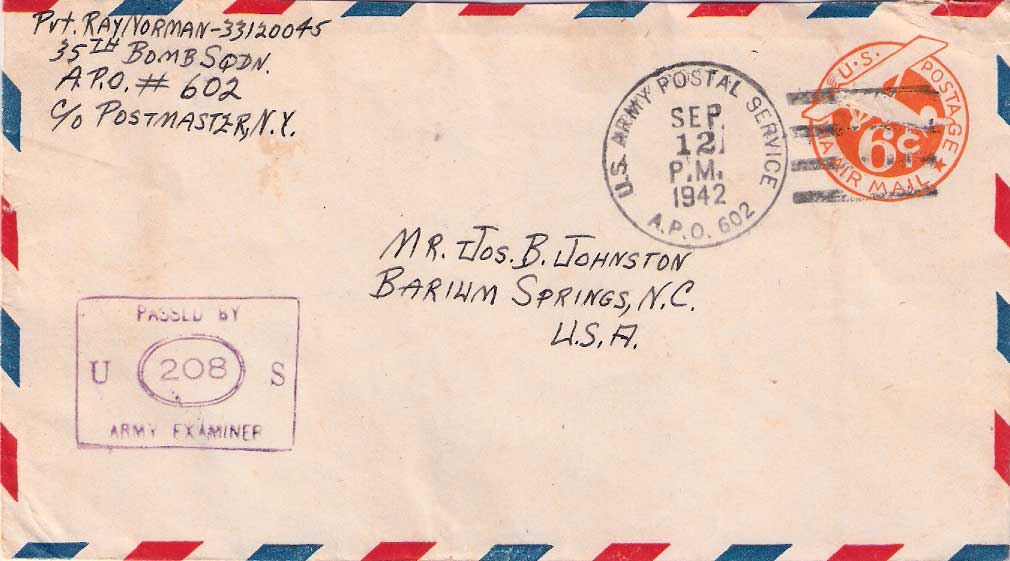 Pvt. RAY NORMAN-33120045
35TH BOMB SQDN.
A.P.O. # 602
C/O POSTMASTER, N.Y.
U.S. ARMY POSTAL SERVICE
SEP
12
P.M.
1942
A.P.O. 602
U.S. POSTAGE
6¢
VIA AIR MAIL
MR. JOS. B. JOHNSTON
BARIUM SPRINGS, N.C.
U.S.A.
PASSED BY
U 208 S
ARMY EXAMINER